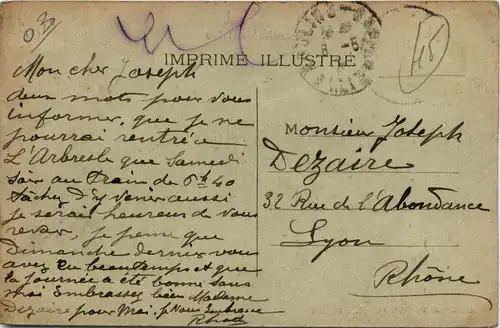 03
45
IMPRIMÉ ILLUSTRÉ
Mon cher Joseph
deux mots pour vous
informer, que je ne
pourrai rentrée
L'Arbresle que Samedi
soir au Train de 6h40
tâchez d'y venir aussi
je serai heureux de vous
revoir, je pense que
Dimanche dernier vous
avez eu beau temps et que
la journée a été bonne sans
moi Embrassez bien Madame
Dezaire pour Moi. Je Vous Embrasse
Monsieur Joseph
Dezaire
32 Rue de l'Abondance
Lyon
Rhône